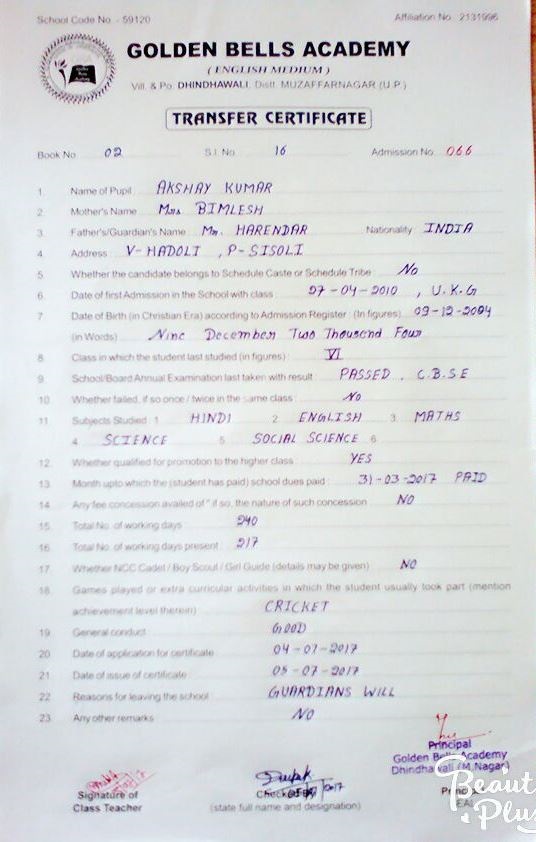 School Code No - 59120 Affiliation No 2131996
GOLDEN BELLS ACADEMY
(ENGLISH MEDIUM)
Vill. & Po. DHINDHAWALI, Distt. MUZAFFARNAGAR (U.P.)
TRANSFER CERTIFICATE
Book No 02 S.I. No. 16 Admission No. 066
1. Name of Pupil AKSHAY KUMAR
2. Mother's Name Mrs BIMLESH
3. Father's/Guardian's Name Mr. HARENDAR Nationality INDIA
4. Address : V-HADOLI , P-SISOLI
5. Whether the candidate belongs to Schedule Caste or Schedule Tribe No
6. Date of first Admission in the School with class : 27-04-2010 , U.K.G
7 Date of Birth (in Christian Era) according to Admission Register (In figures) 09-12-2004
(in Words) Nine December Two Thousand Four
8 Class in which the student last studied (in figures) : VI
9. School/Board Annual Examination last taken with result : PASSED , C.B.S.E
10. Whether failed, if so once / twice in the same class : No
11. Subjects Studied 1. HINDI 2. ENGLISH 3. MATHS
4. SCIENCE 5. SOCIAL SCIENCE 6.
12. Whether qualified for promotion to the higher class : YES
13. Month upto which the (student has paid) school dues paid : 31-03-2017 PAID
14. Any fee concession availed of " if so, the nature of such concession NO
15 Total No. of working days 240
16. Total No. of working days present 217
17. Whether NCC Cadet / Boy Scout / Girl Guide (details may be given) NO
18. Games played or extra curricular activities in which the student usually took part (mention
achievement level therein) CRICKET
19 General conduct GOOD
20 Date of application for certificate 04-07-2017
21 Date of issue of certificate 05-07-2017
22 Reasons for leaving the school GUARDIANS WILL
23 Any other remarks NO
Principal
Golden Bells Academy
Dhindhawali (M.Nagar)
Signature of
Class Teacher
Deepak
Checked By
(state full name and designation)